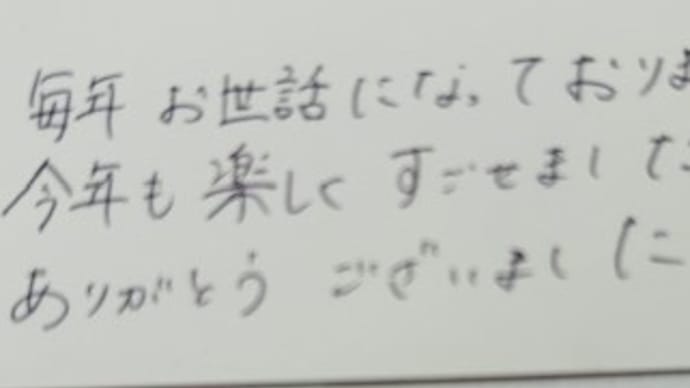 毎年 お世話になっておりま
今年も 楽しく すごせました
ありがとう ございました